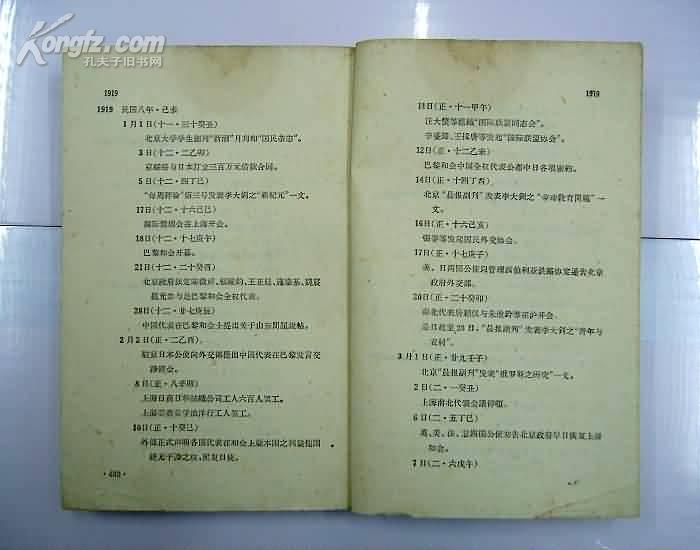 Kongfz.com
孔夫子旧书网
1919
1919 民国八年·己未
1月1日(十一·三十癸丑)
北京大学学生创刊“新潮”月刊和“国民杂志”。
3日(十二·二乙卯)
京绥路与日本订立三百万元借款合同。
5日(十二·四丁巳)
“每周评论”第三号发表李大钊之“新纪元”一文。
17日(十二·十六己巳)
上海开会。
18日(十二·十七庚午)
巴黎和会开幕。
21日(十二·二十癸酉)
北京政府派定陆徵祥、顾维钧、王正廷、施肇基、魏宸
组充参与巴黎和会全权代表。
28日(十二·廿七庚辰)
中国代表在巴黎和会上提出关于山东问题说帖。
2月2日(正·二乙酉)
驻京日本公使向外交部提出中国代表在巴黎发言交
涉
8日(正·八辛卯)
上海日商日华纺织公司工人六百人罢工。
上海
洋行工人罢工。
10日(正·十癸巳)
外部正式声明各国代表在和会上
·460·
1919
11日(正·十一甲午)
汪大燮等组织“国际联盟同志会”。
李盛铎、王揖唐等发起“国际联盟协会”。
12日(正·十二乙未)
巴黎和会中国全权代表公布中日各项密约。
14日(正·十四丁酉)
北京“晨报副刊”发表李大钊之“劳动教育问题”一
文。
16日(正·十六己亥)
张謇等发起国民外交协会。
17日(正·十七庚子)
英、日两国公使以管理西伯利亚铁路协定通告北京
政府外交部。
20日(正·二十癸卯)
南北代表唐绍仪与朱启钤等在沪开会。
是日起至23日,“晨报副刊”发表李大钊之“青年与
农村”。
3月1日(正·廿九壬子)
北京“晨报副刊”发表“俄罗斯之研究”一文。
2日(二·一癸丑)
上海南北代表会议停顿。
6日(二·五丁巳)
英、美、法、意四国公使劝告北京政府早日恢复上海
和会。
7日(二·六戊午)